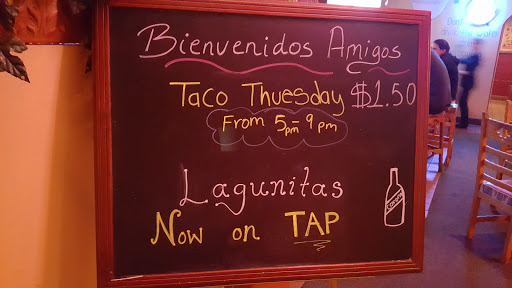 Bienvenidos Amigos
Taco Thuesday $1.50
From 5pm-9pm
Lagunitas
Now on TAP